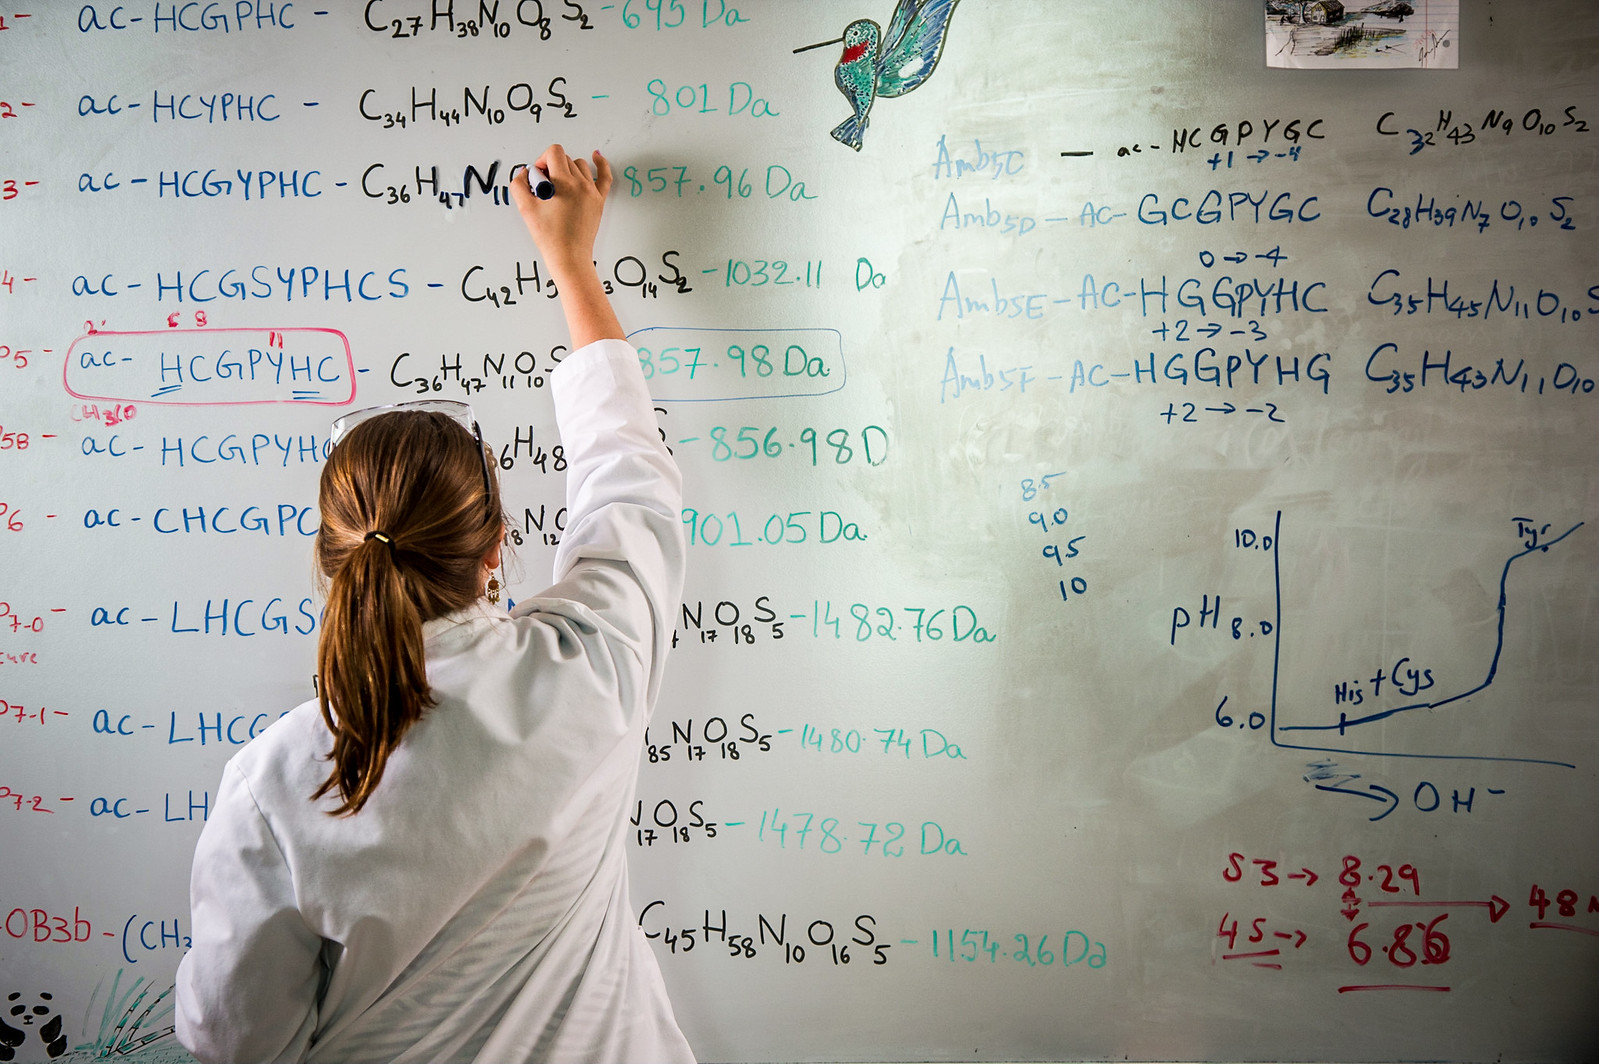 1- ac-HCGPHC - C27H38N10O8S2 - 695 Da
2- ac-HCYPHC - C34H44N10O9S2 - 801 Da
3- ac-HCGYPHC - C36H47N11 857.96 Da
4- ac-HCGSYPHCS - C42H O14S2 - 1032.11 Da
2' 6 8 11
P5 - ac-HCGPYHC - C36H47N11O10S 857.98 Da
CH3CO
P5B - ac-HCGPYH 6H48 - 856.98 D
P6 - ac-CHCGPC 18N12 901.05 Da
P7-0 - ac-LHCGS N17O18S5 - 1482.76 Da
P7-1 - ac-LHCG 85N17O18S5 - 1480.74 Da
P7-2 - ac-LH N17O18S5 - 1478.72 Da
OB3b - (CH3 C45H58N10O16S5 - 1154.26 Da
Amb5C — ac-HCGPYGC C32H43N9O10S2
+1 → -4
Amb5D - AC-GCGPYGC C28H39N7O10S2
0 → -4
Amb5E - AC-HGGPYHC C35H45N11O10S
+2 → -3
Amb5F - AC-HGGPYHG C35H43N11O10
+2 → -2
8.5
9.0
9.5
10
Tyr
10.0
pH 8.0
His + Cys
6.0
→ OH-
S3 → 8.29 → 48
4S → 6.86